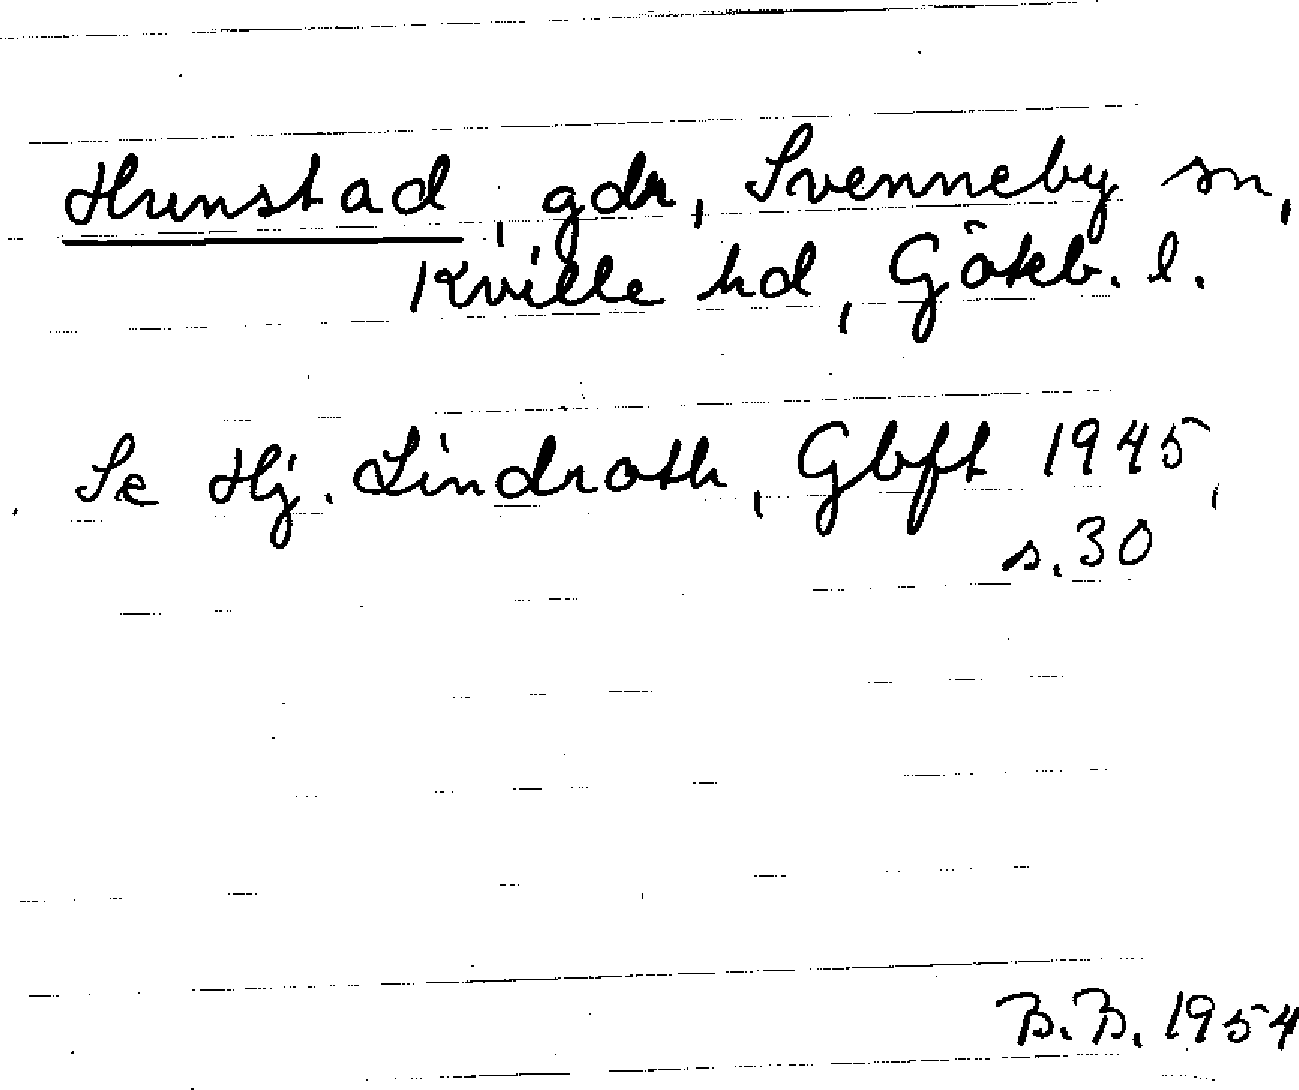 Hunstad, gdr, Svenneby sn,
Kville hd, Göteb. l.
Se Hj. Lindroth, Gbft 1945,
s. 30
B. B. 1954